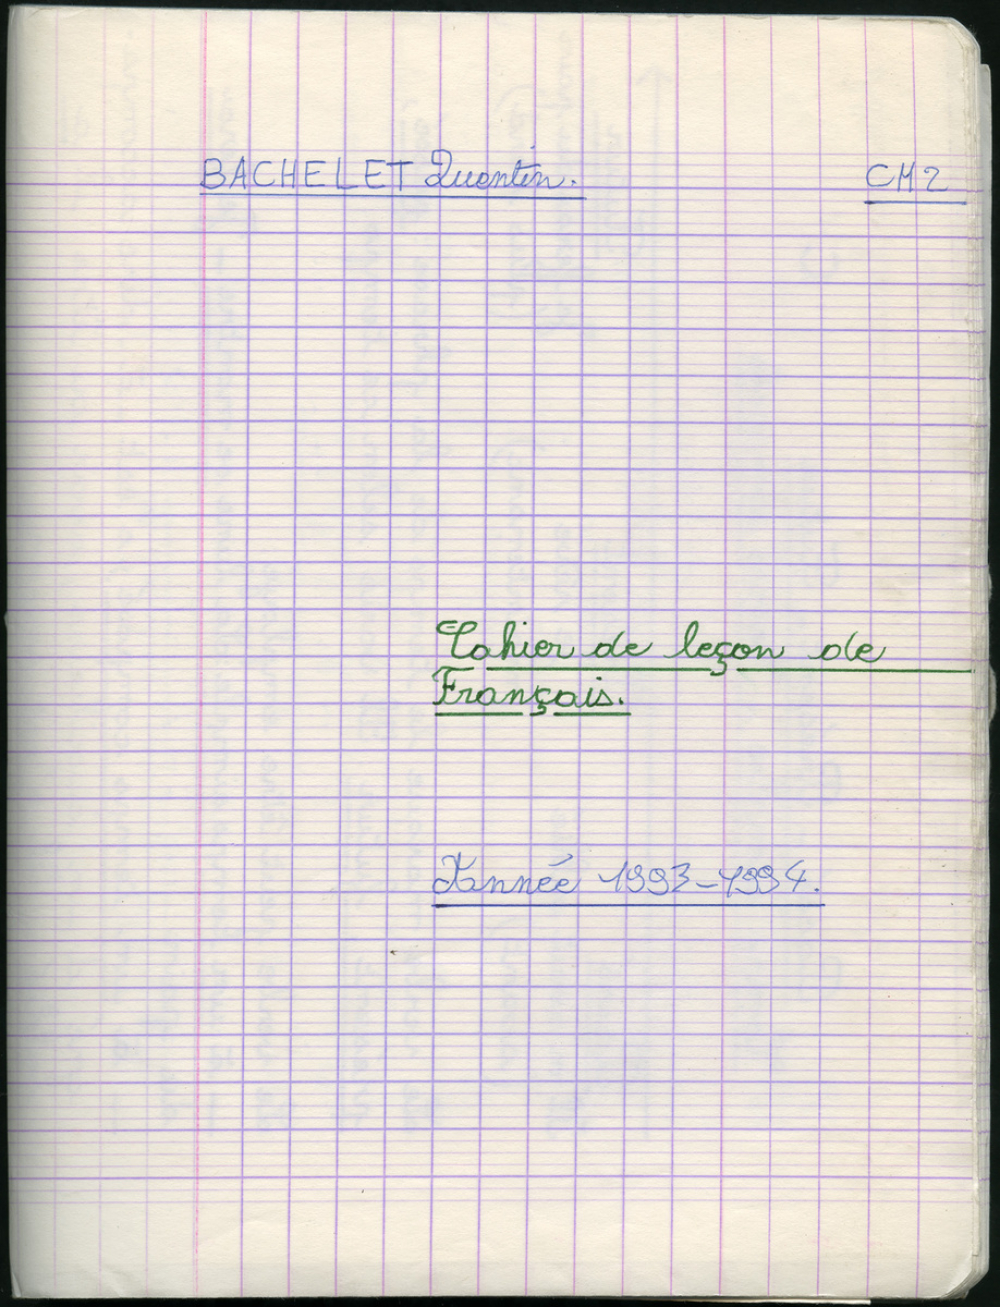 BACHELET Quentin. CM2
Cahier de leçon de
Français.
Année 1993-1994.